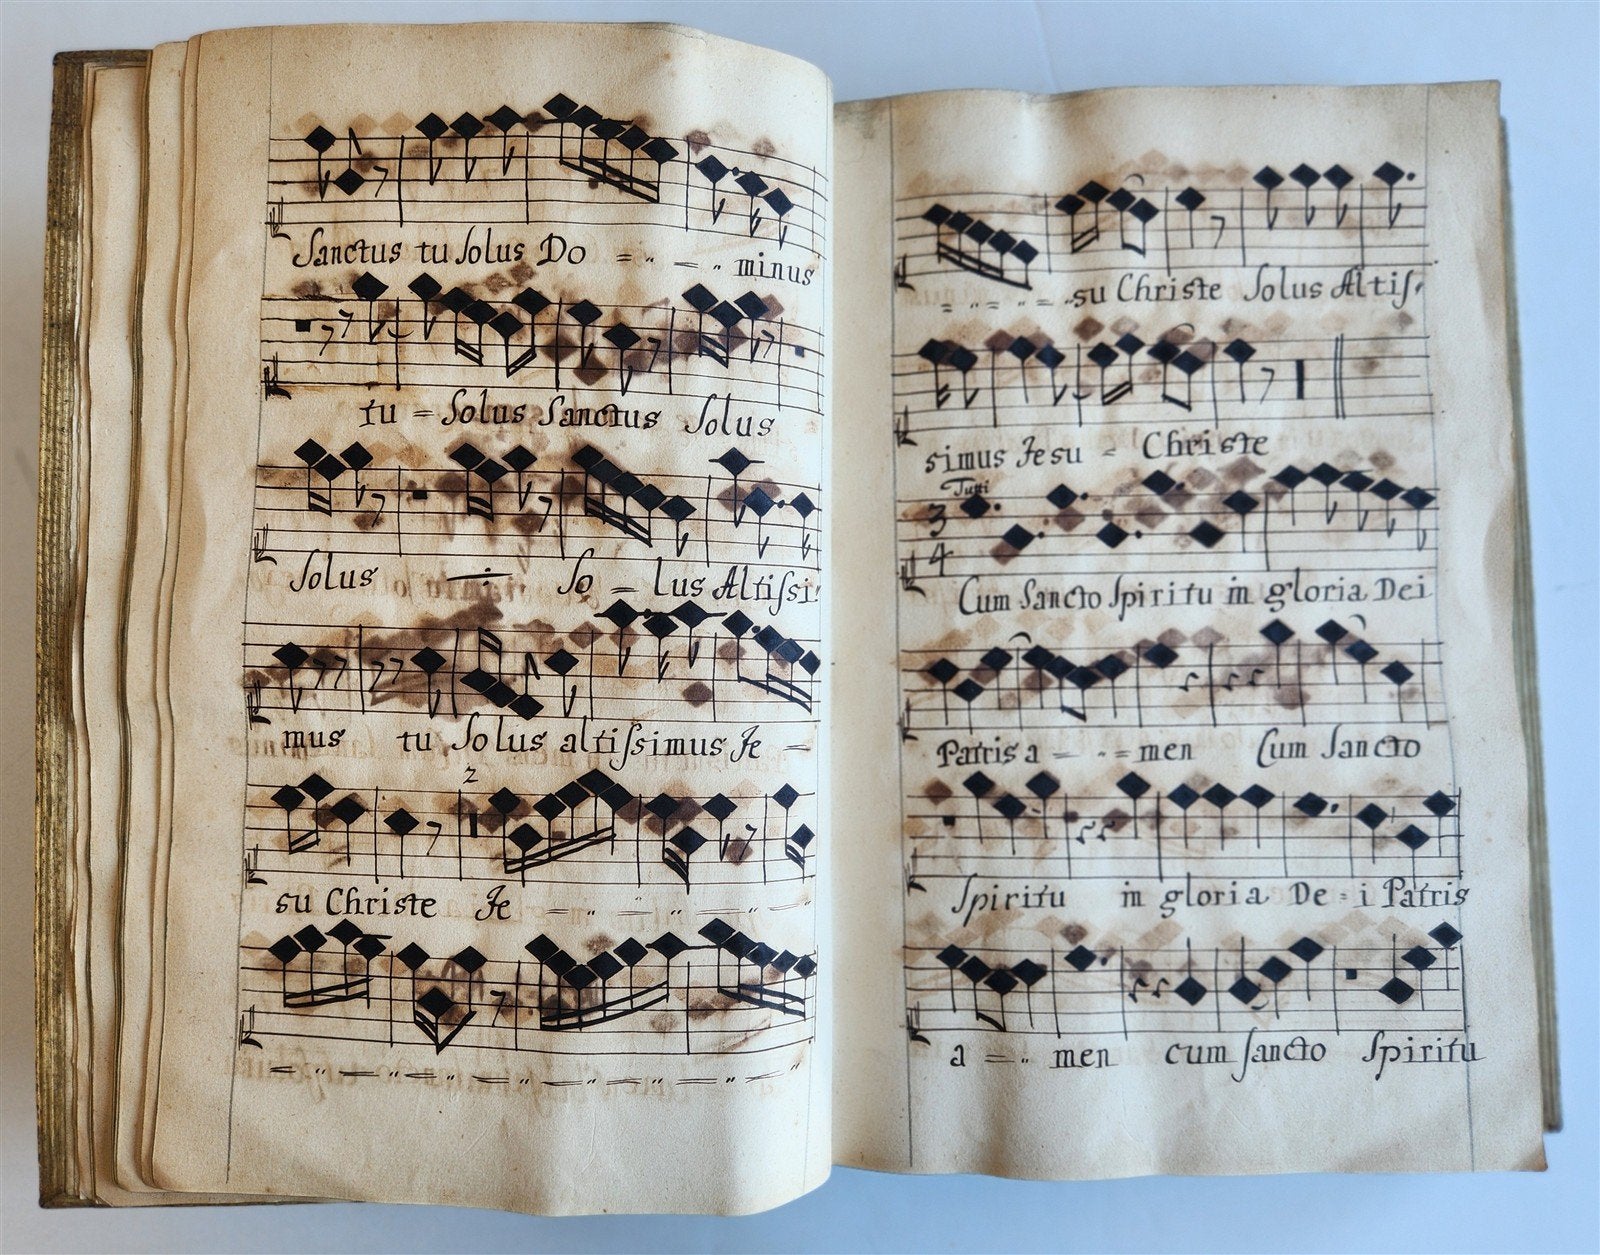 Sanctus tu Solus Do = ·· = ·· minus
tu = Solus Sanctus Solus
Solus So = lus Altissi:
mus tu Solus altissimus Je =
2
su Christe Je = ·· = ·· = ·· =
= ·· = ·· = ·· = ·· = ·· = ·· = ·· =
= ·· = ·· = ·· = ·· su Christe Solus Altis:
simus Jesu = Christe
Tutti
3
4
Cum Sancto Spiritu in gloria Dei
Patris a = ·· = men Cum Sancto
Spiritu in gloria De = i Patris
a = ·· men cum sancto Spiritu